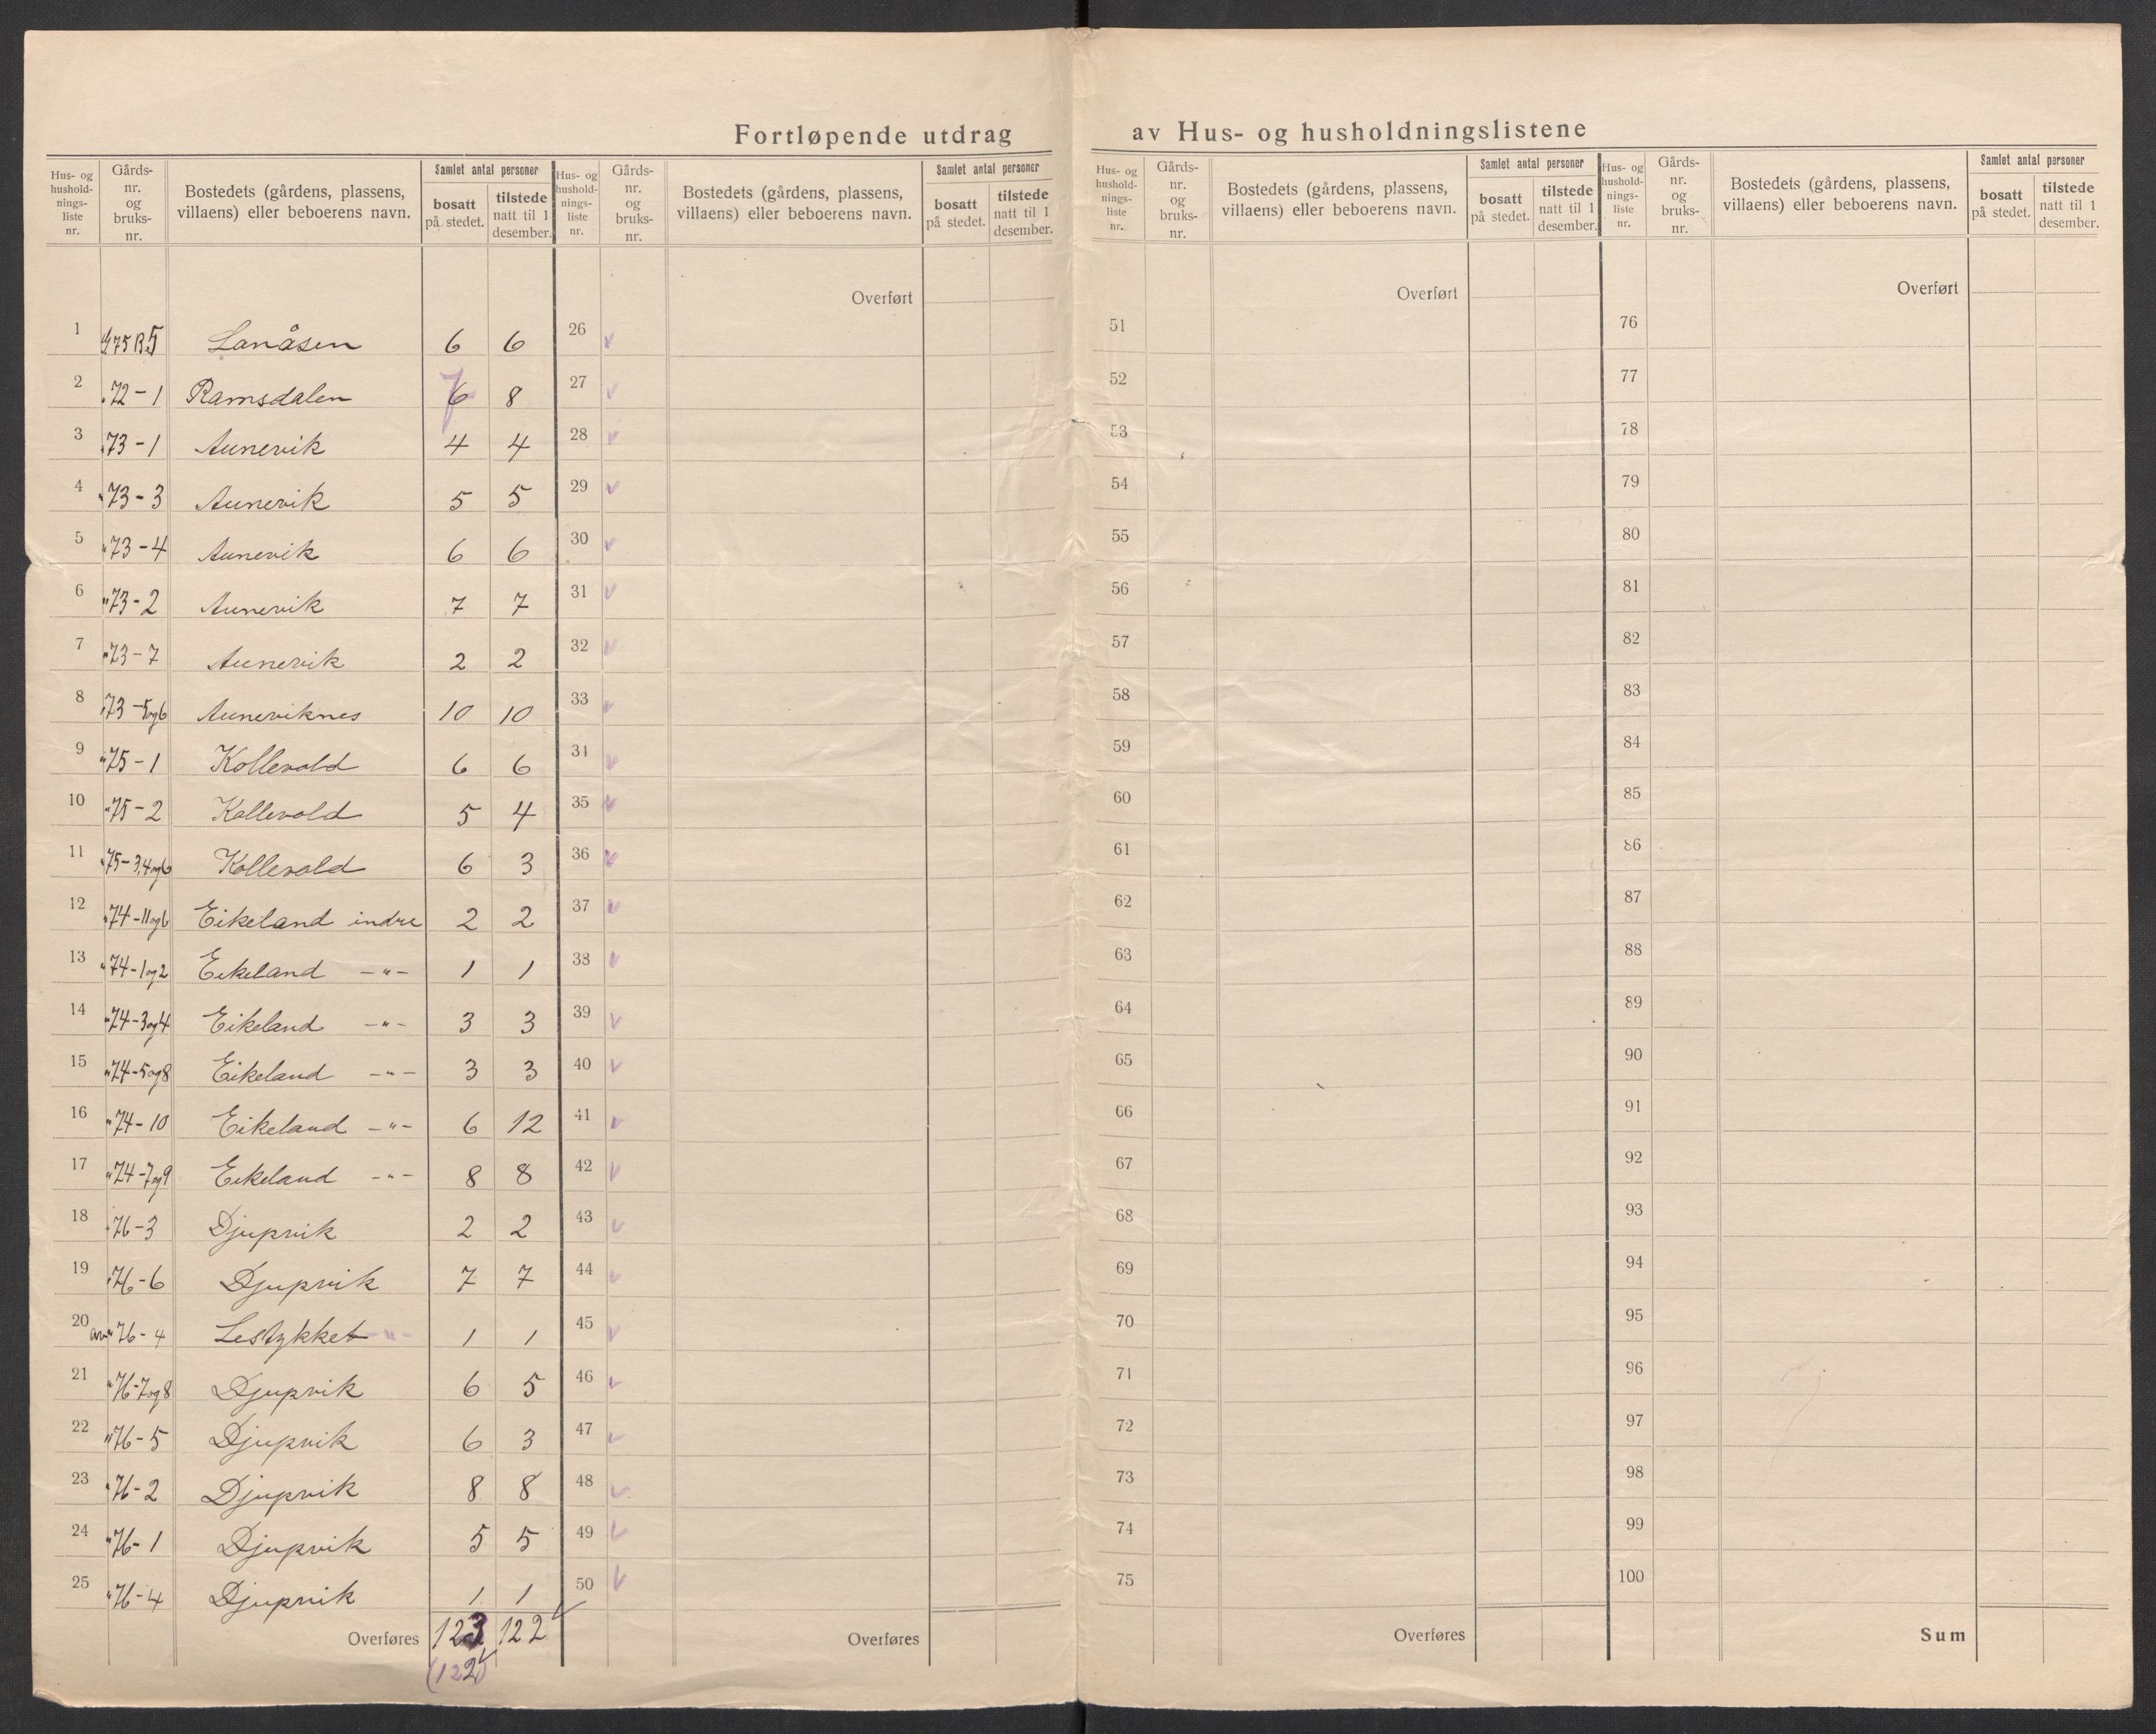 Fortløpende utdrag av Hus- og husholdningslistene
Hus- og hushold-nings-liste nr. Gårds-nr. og bruks-nr. Bostedets (gårdens, plassens, villaens) eller beboerens navn. Samlet antal personer bosatt på stedet. tilstede natt til 1 desember.
Hus- og hushold-nings-liste nr. Gårds-nr. og bruks-nr. Bostedets (gårdens, plassens, villaens) eller beboerens navn. Samlet antal personer bosatt på stedet. tilstede natt til 1 desember.
Hus- og hushold-nings-liste nr. Gårds-nr. og bruks-nr. Bostedets (gårdens, plassens, villaens) eller beboerens navn. Samlet antal personer bosatt på stedet. tilstede natt til 1 desember.
Hus- og hushold-nings-liste nr. Gårds-nr. og bruks-nr. Bostedets (gårdens, plassens, villaens) eller beboerens navn. Samlet antal personer bosatt på stedet. tilstede natt til 1 desember.
Overført Overført Overført
1 G75 B.5 Lanåsen 6 6 26 51 76
2 72-1 Ramsdalen 7 8 27 52 77
3 73-1 Aunevik 4 4 28 53 78
4 "73-3 Aunevik 5 5 29 54 79
5 "73-4 Aunevik 6 6 30 55 80
6 "73-2 Aunevik 7 7 31 56 81
7 "73-7 Aunevik 2 2 32 57 82
8 "73-5og6 Auneviknes 10 10 33 58 83
9 "75-1 Kollevold 6 6 34 59 84
10 "75-2 Kollevold 5 4 35 60 85
11 "75-3,4og6 Kollevold 6 3 36 61 86
12 "74-11og6 Eikeland indre 2 2 37 62 87
13 "74-1og2 Eikeland -"- 1 1 38 63 88
14 "74-3og4 Eikeland -"- 3 3 39 64 89
15 "74-5og8 Eikeland -"- 3 3 40 65 90
16 "74-10 Eikeland -"- 6 12 41 66 91
17 "74-7og9 Eikeland -"- 8 8 42 67 92
18 "76-3 Djupvik 2 2 43 68 93
19 "76-6 Djupvik 7 7 44 69 94
20 av "76-4 Lestykket -"- 1 1 45 70 95
21 "76-7og8 Djupvik 6 5 46 71 96
22 "76-5 Djupvik 6 3 47 72 97
23 "76-2 Djupvik 8 8 48 73 98
24 "76-1 Djupvik 5 5 49 74 99
25 "76-4 Djupvik 1 1 50 75 100
Overføres 123 122 Overføres Overføres Sum
(122)